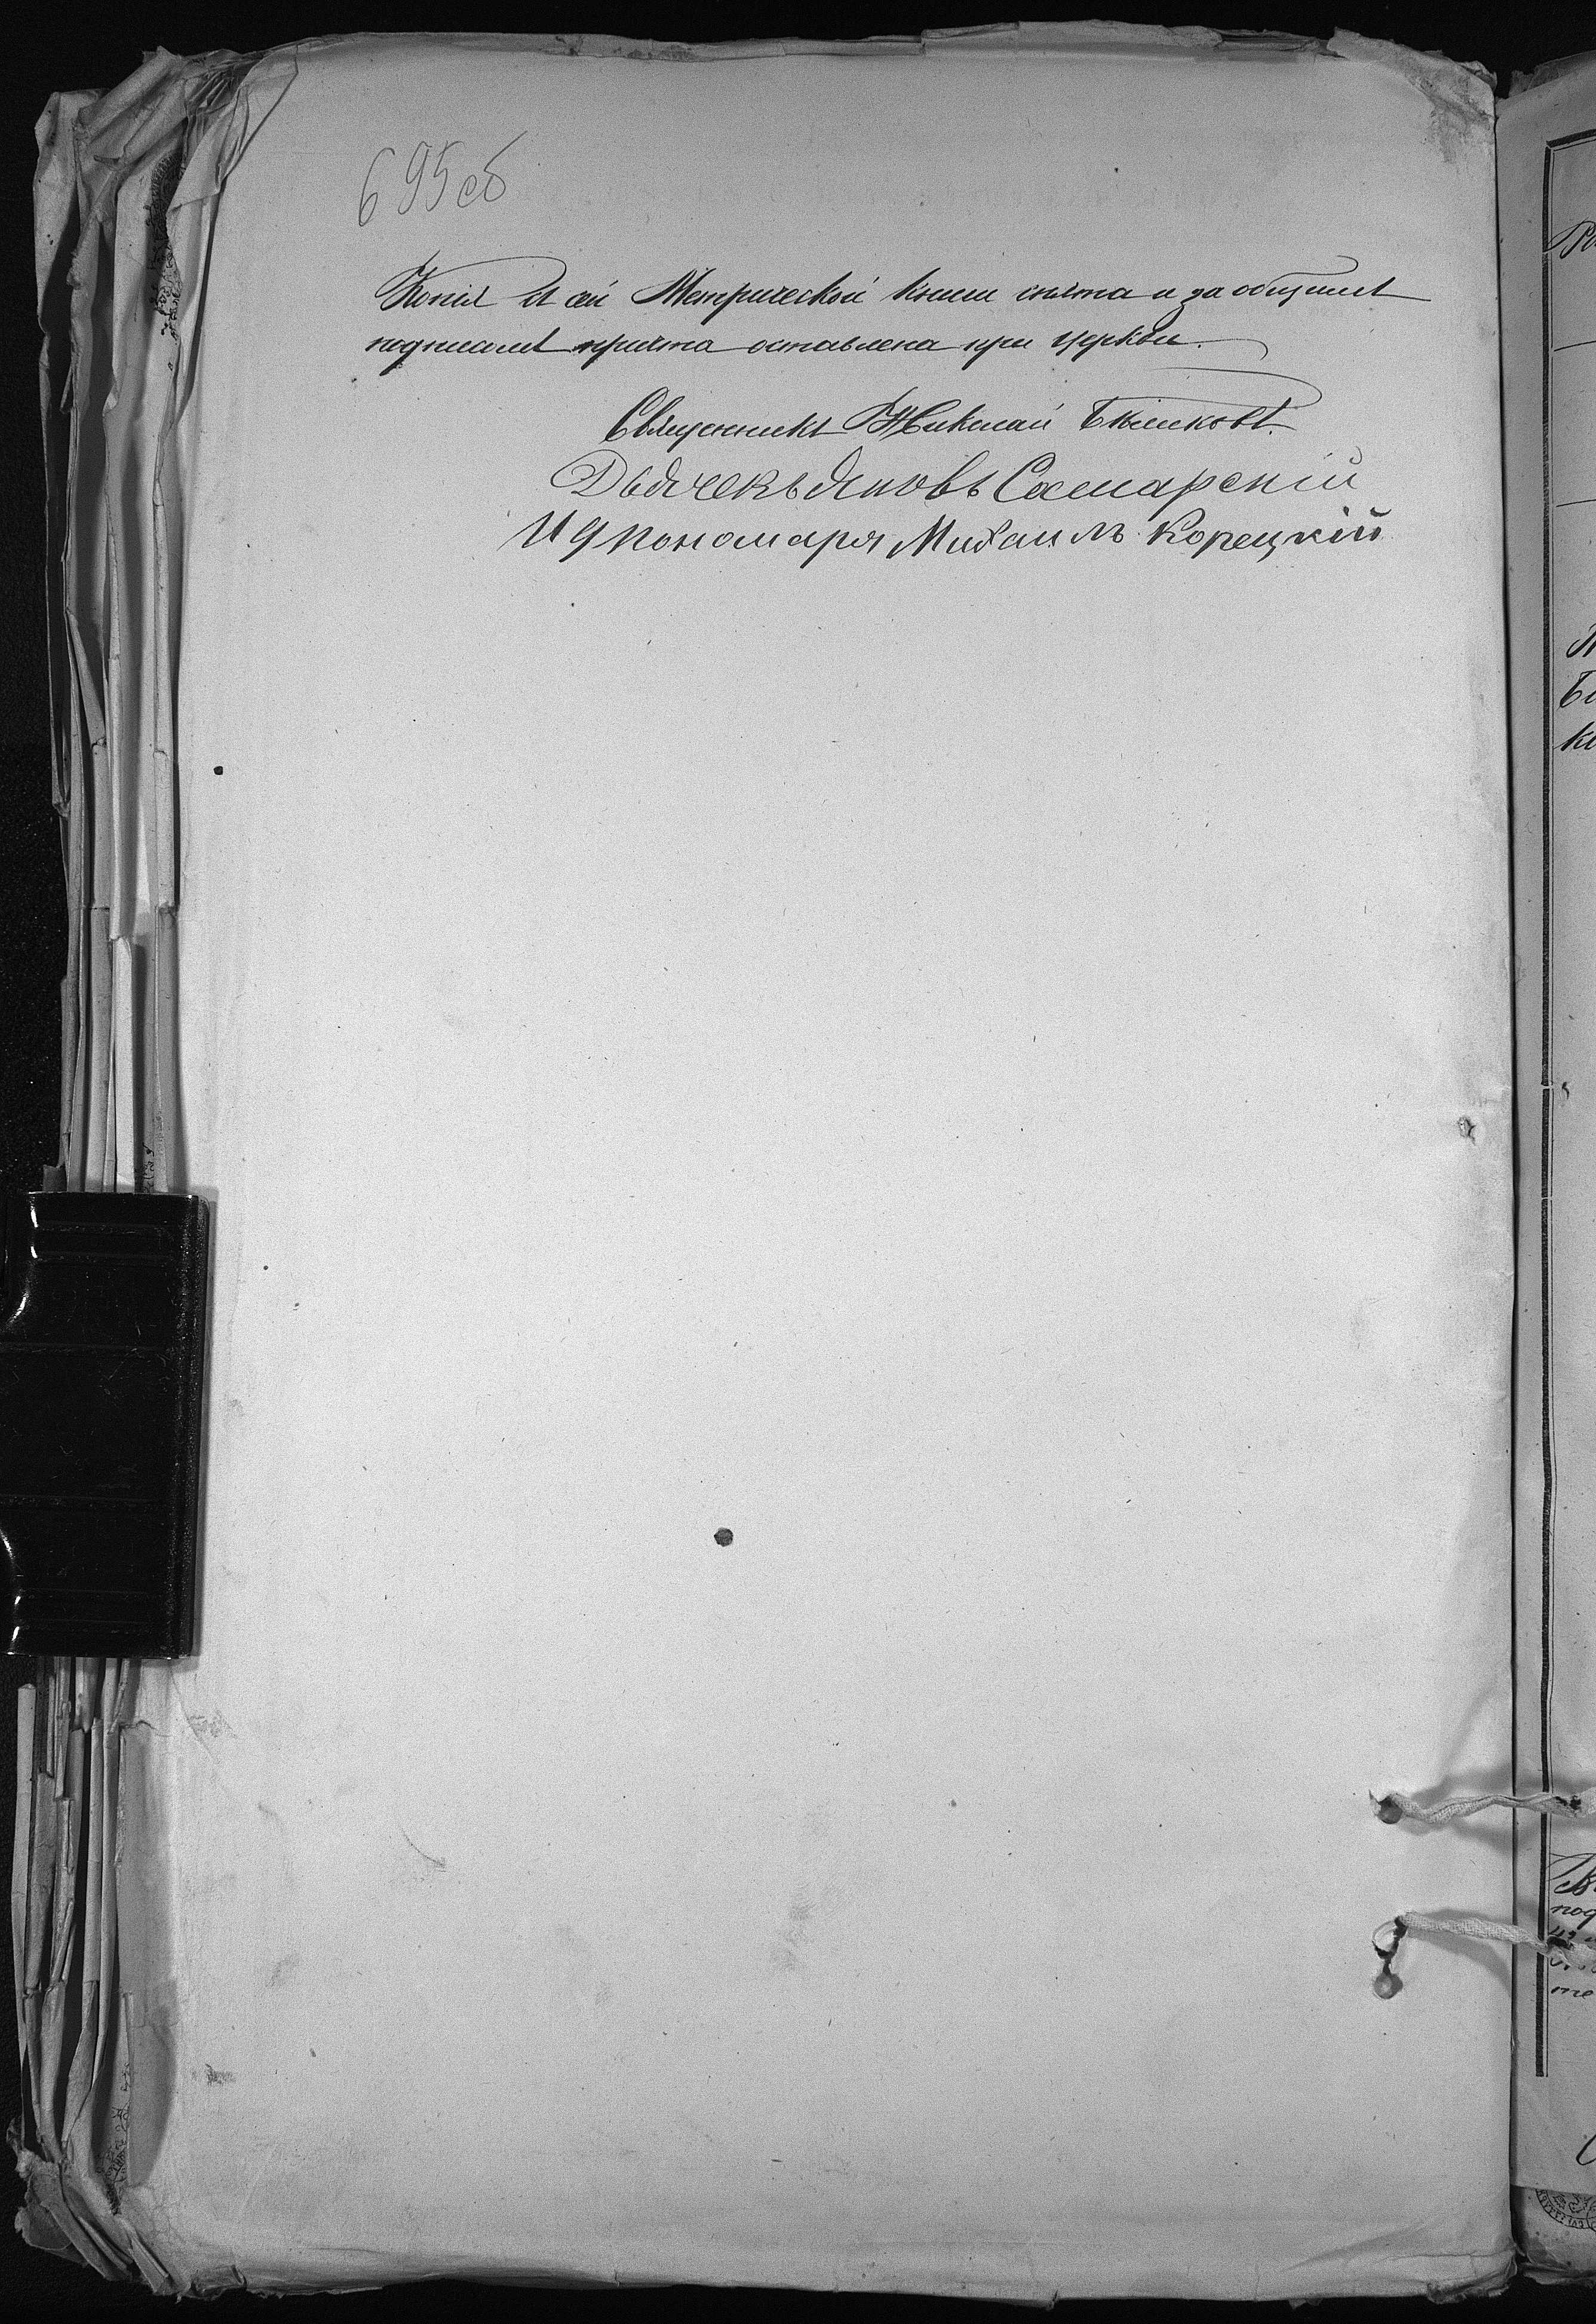 695об
Копія съ сей Метрической книги снята и за общимъ
подписомъ причта оставлена при церкви.
Священникъ Николай
Дьячекъ Яковъ Самарскій
И д пономаря Михаилъ Корецкій